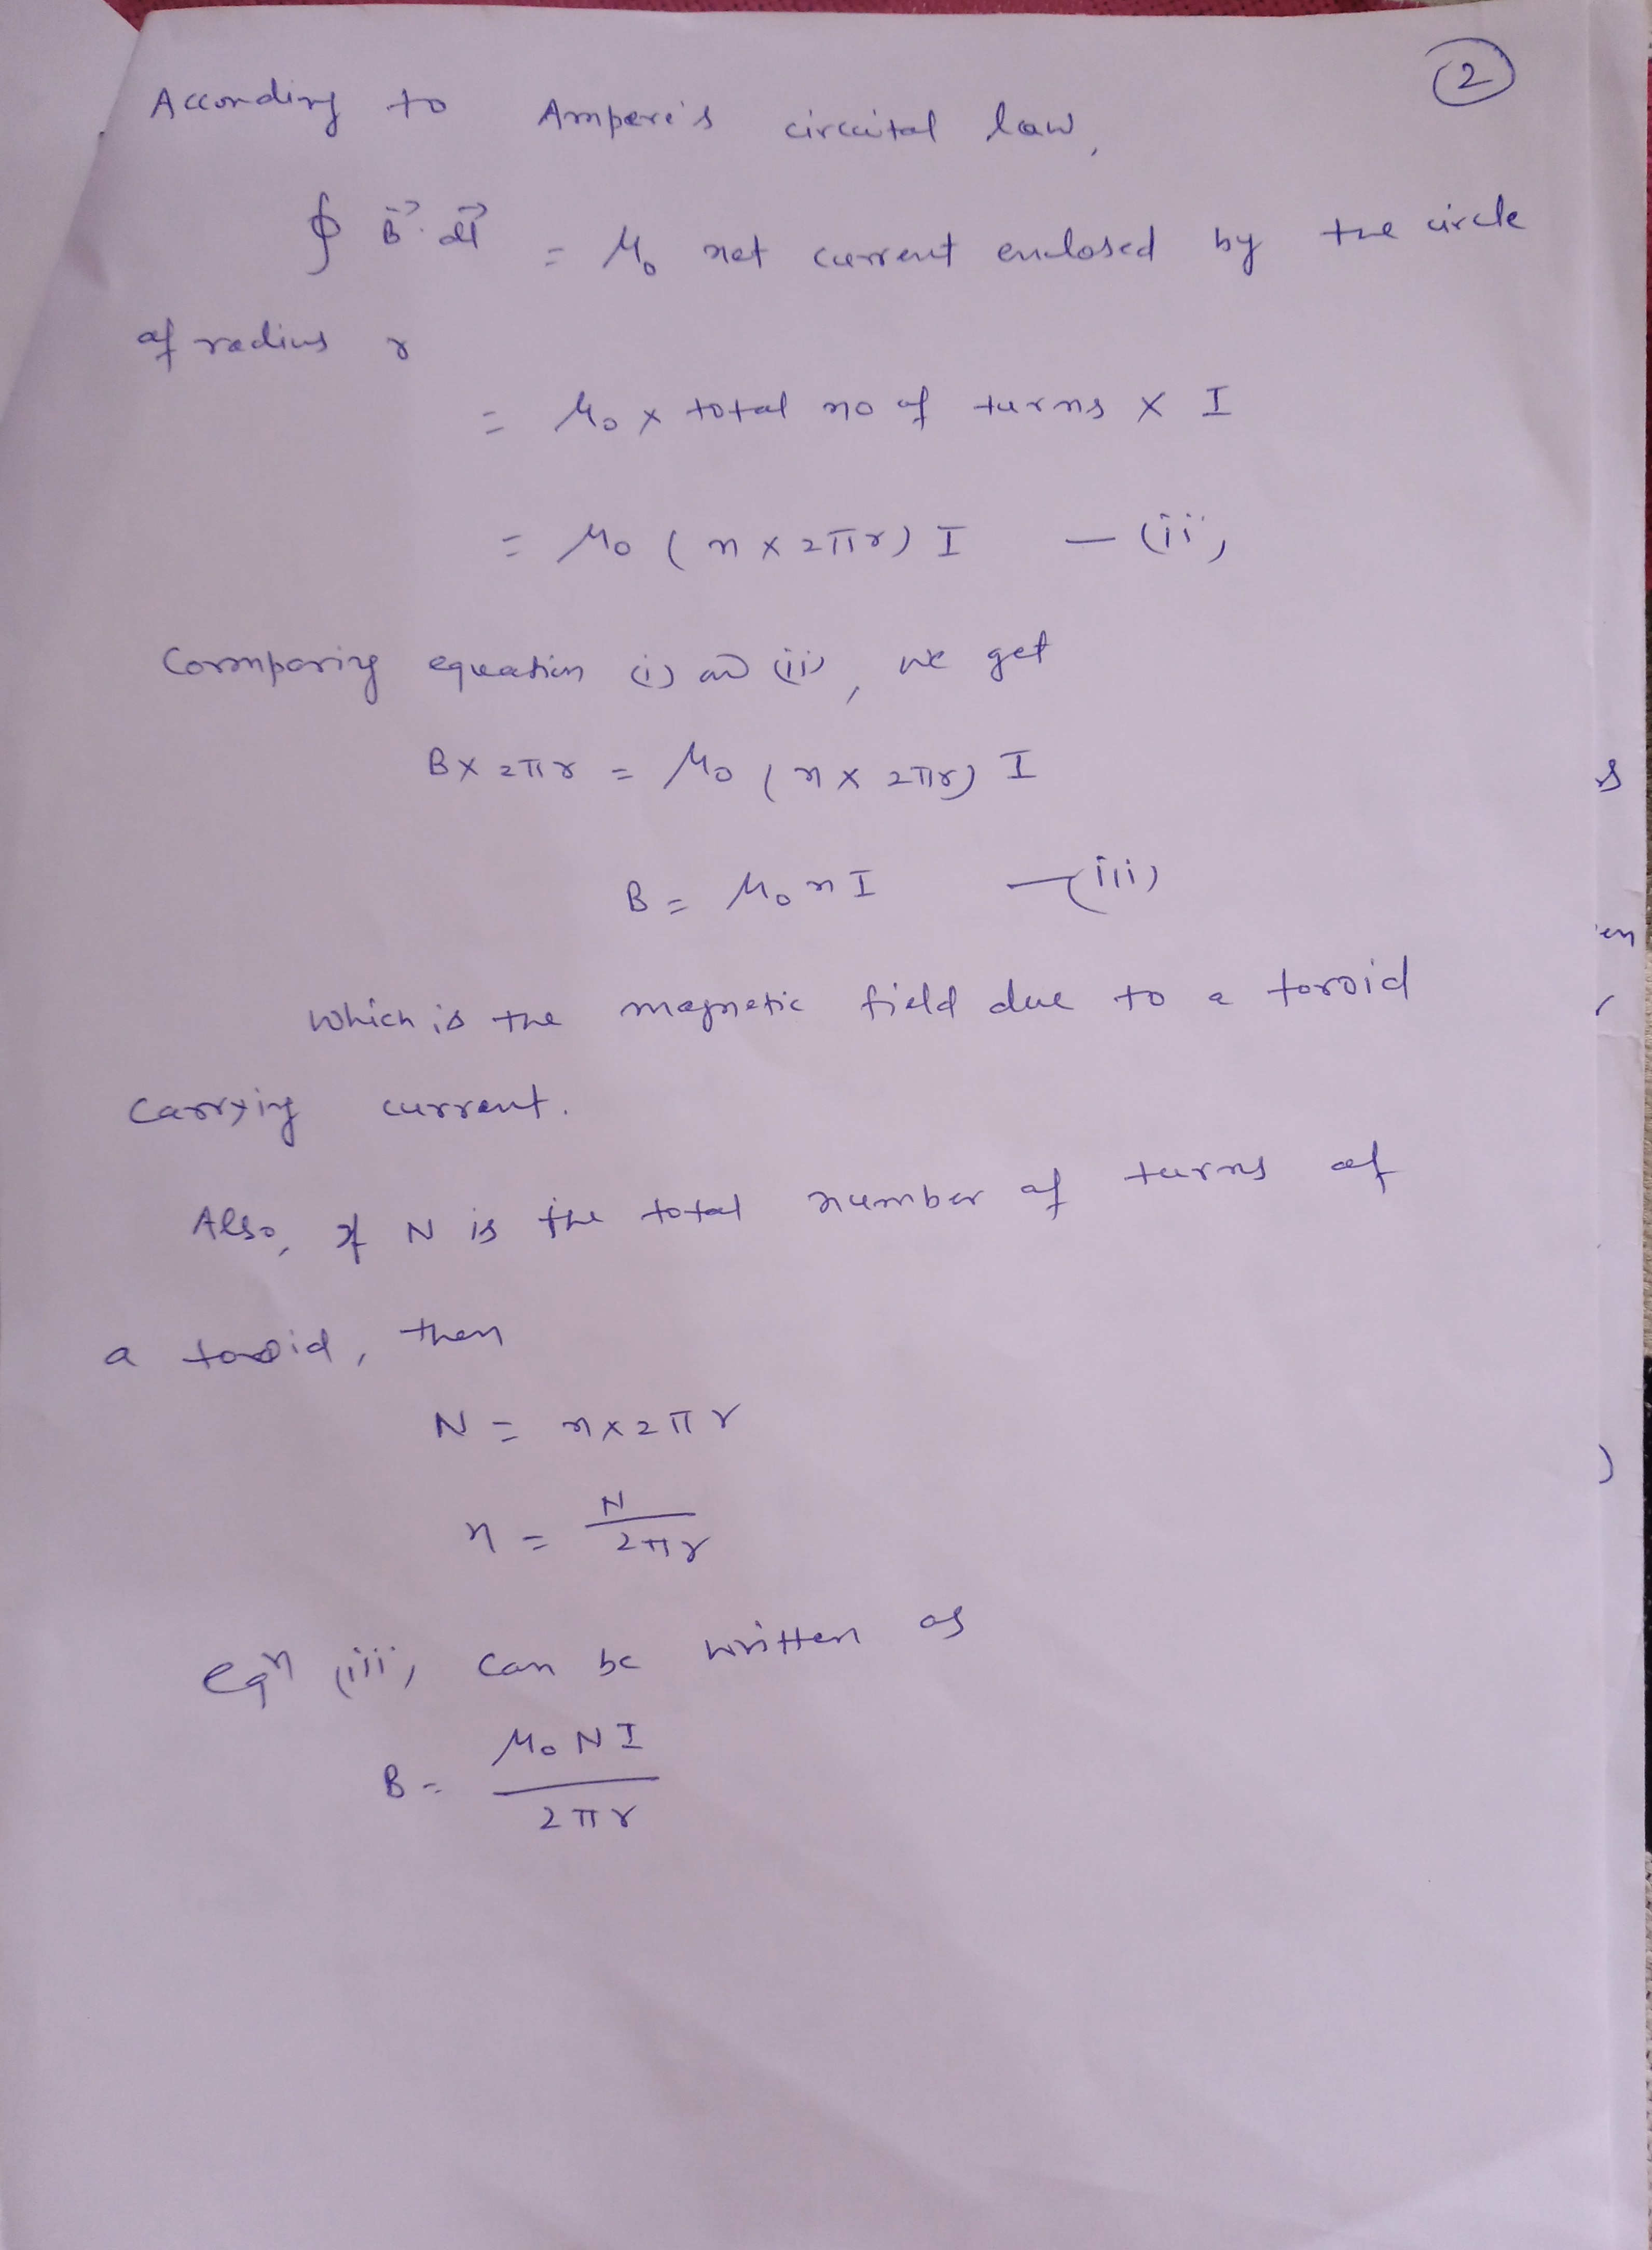 2
According to Ampere's circuital law,
∮ B⃗. dl⃗ = μ₀ net current enclosed by the circle
of radius r
= μ₀ x total no of turns x I
= μ₀ ( n x 2πr) I — (ii)
Comparing equation (i) and (ii), we get
B x 2πr = μ₀ ( n x 2πr) I
B = μ₀ n I — (iii)
which is the magnetic field due to a toroid
carrying current.
Also, if N is the total number of turns of
a toroid, then
N = n x 2πr
n = N / 2πr
eqⁿ (iii) can be written as
B = μ₀ N I / 2πr